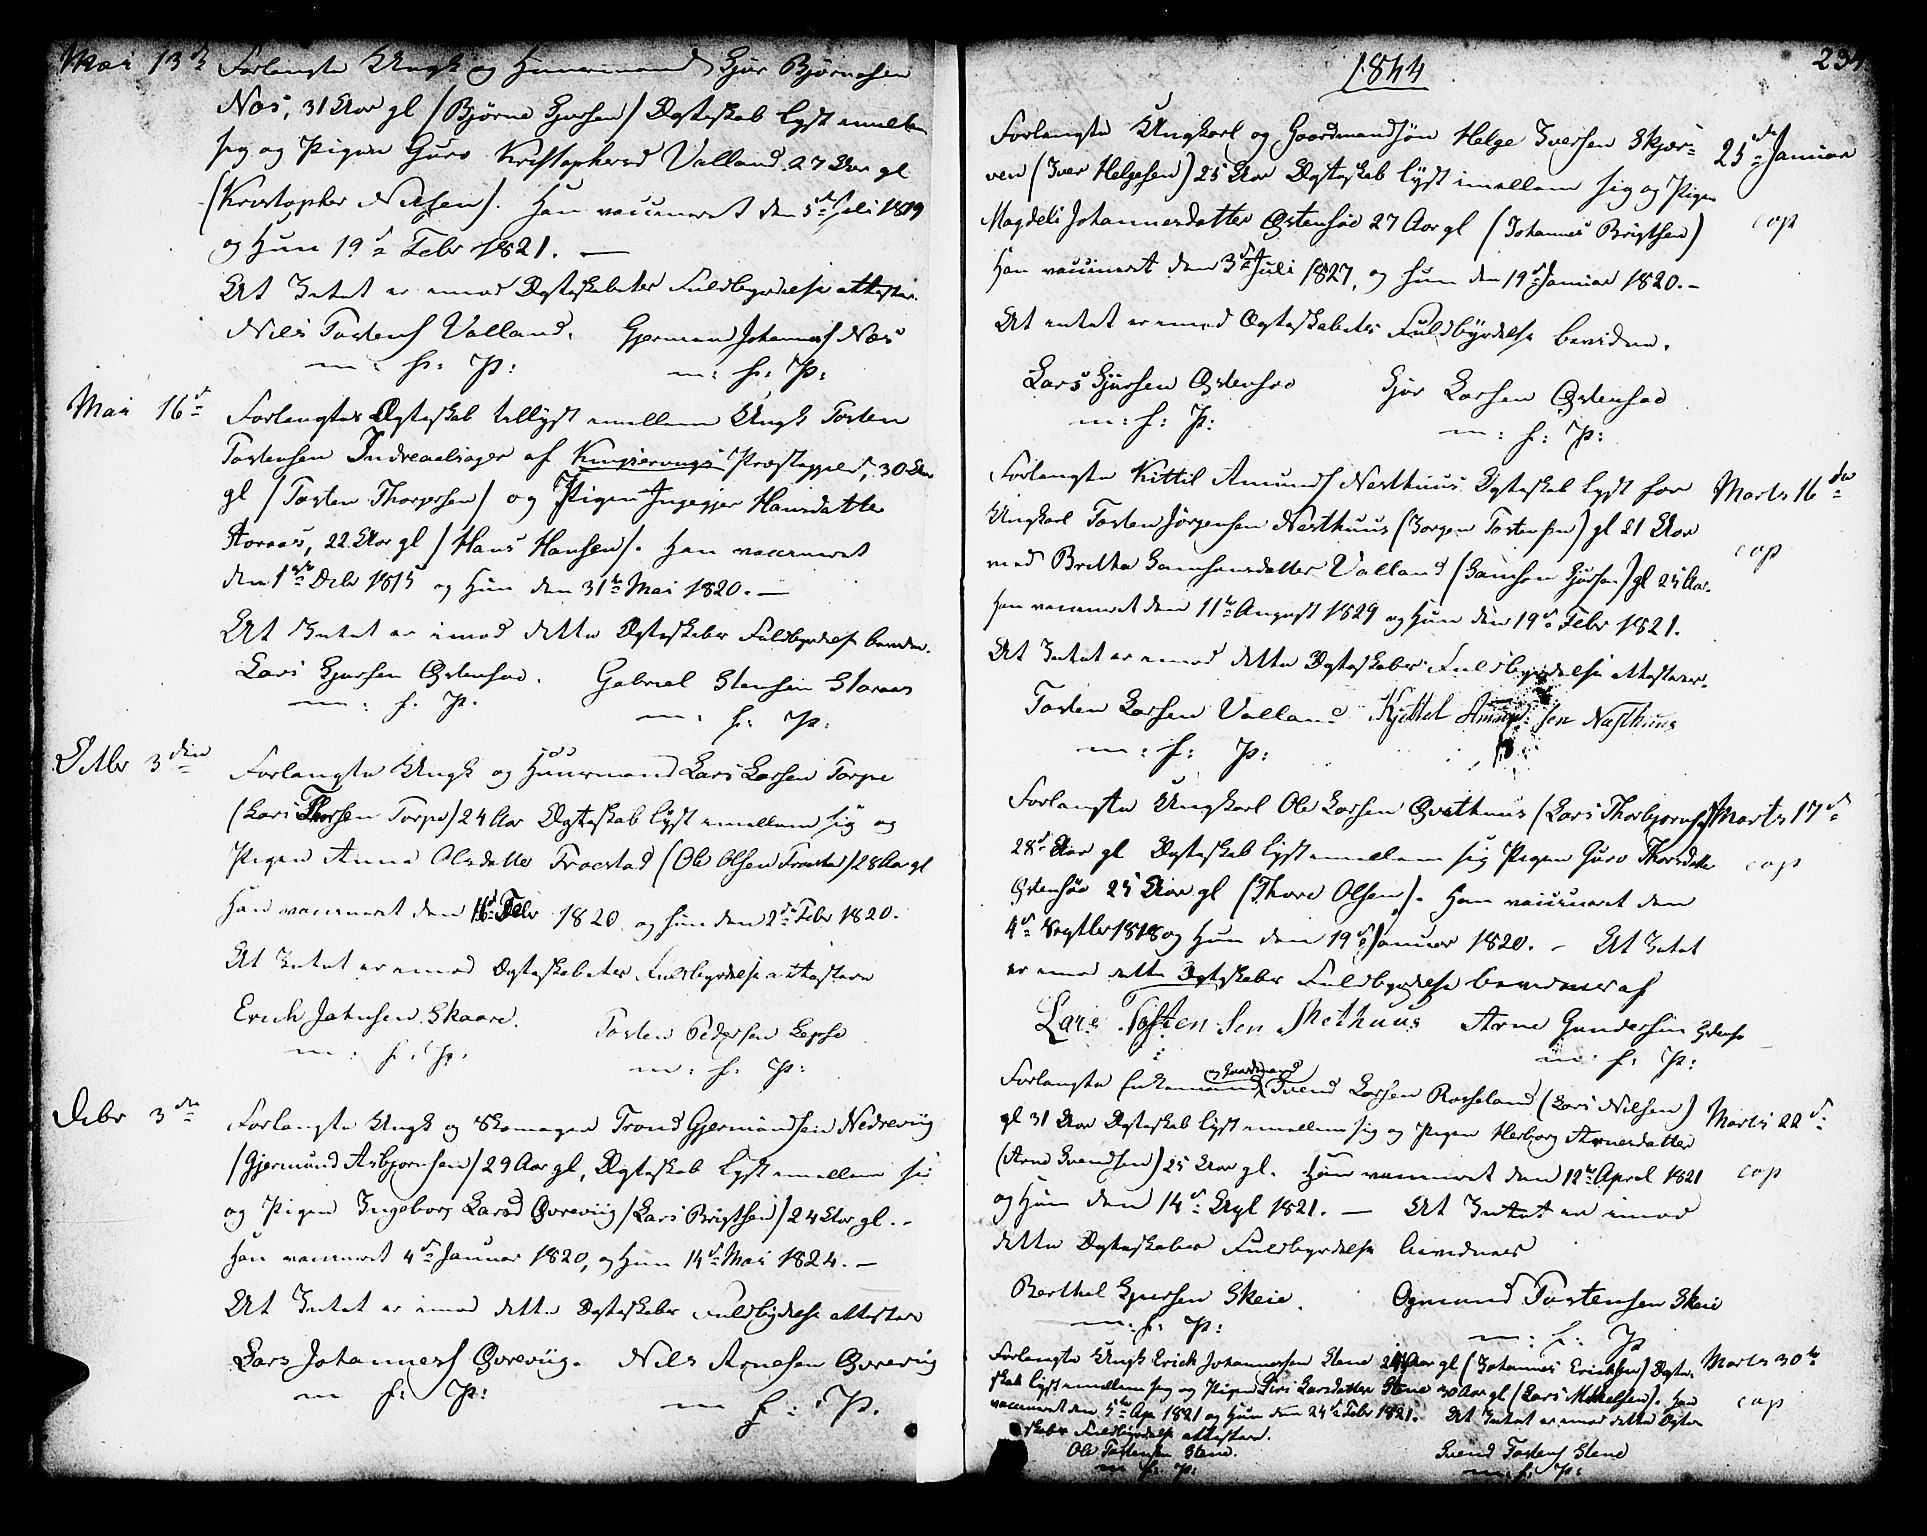 Mai 13d Forlangte Ungk og Huusmand Gjør Bjørnesen
Næs, 31 Aar gl (Bjørne Gjørsen) Ægteskab lyst imellem
sig og Pigen Guro Kristophersd Valland 27 Aar gl
(Kristopher Nilsen). Han vaccineret den 5te Juli 1819
og Hun 19de Febr 1821. —
At Intet er imod Ægteskabets Fuldbyrdelse attesterer
Nils Tostens Valland. Gjermund Johannes Næs
m: f: P: m: f: P:
Mai 16d Forlangtes Ægteskab tillyst imellem Ungk Tosten
Tostensen Indreaalsager af Præstegjeld, 30 Aar
gl (Tosten Thorgersen) og Pigen Ingegjer Hansdatter
Storaas, 22 Aar gl (Hans Hansen). Han vaccineret
den 1ste Debr 1815 og Hun den 31te Mai 1820. —
At Intet er imod dette Ægteskabs Fuldbyrdelse bevidne.
Lars Gjørsen Østensøe. Gabriel Stensen Storaas
m: f: P. m: f: P:
Octbr 3die Forlangte Ungk og Huusmand Lars Larsen Torpe
(Lars Thorsen Torpe) 24 Aar Ægteskab lyst imellem sig og
Pigen Anna Olsdatter Traastad (Ole Olsen Traastad) 28 Aar gl
Han vaccineret den 16de Febr 1820 og hun den 2den Febr 1820.
At Intet er imod Ægteskabets Fuldbyrdelse attestere
Erich Johnsen Skaare. Tosten Pedersen Lepsø
m: f: P. m: f: P:
Debr 3die Forlangte Ungk og Skomager Trond Gjermundsen Nedreviig
(Gjermund Asbjørnsen) 29 Aar gl, Ægteskab lyst imellem sig
og Pigen Ingeborg Larsd Øvreviig (Lars Brigtsen) 24 Aar gl. -
Han vaccineret 4de Januar 1820, og Hun 14de Mai 1824. —
At Intet er imod dette Ægteskabs Fuldbyrdelse attestere
Lars Johannes Øvreviig. Nils Arnesen Øvreviig
m f: P: m f: P.
1844
Forlangte Ungkarl og Gaardmandsøn Helge Iversen Skjer= 25de Januar
ven (Iver Helgesen) 25 Aar Ægteskab lyst imellem sig og Pigen
Magdeli Johannesdatter Østensøe 27 Aar gl (Johannes Brigtsen) cop
Han vaccineret den 3die Juli 1827, og hun den 19de Januar 1820. -
At intet er imod Ægteskabets Fuldbyrdelse bevidne.
Lars Gjørsen Østensøe Gjør Larsen Østensøe
m: f: P: m: f: P:
Forlangte Kittil Amunds Nesthuus Ægteskab lyst for Marts 16de
Ungkarl Tosten Jørgensen Nesthuus (Jørgen Tostensen) gl 21 Aar
med Britha Samsonsdatter Valland (Samson Gjørsen) gl 25 Aar. cop
Han vaccineret den 11te August 1829 og Hun den 19de Febr 1821.
At Intet er imod dette Ægteskabs Fuldbyrdelse attesterer.
Tosten Larsen Valland Kjettel Amundsen Næsthuus
m: f: P:
Forlangte Ungkarl Ole Larsen Qvithuus (Lars Thorbjørnsen) Marts 17de
28 Aar gl Ægteskab lyst imellem sig Pigen Guro Thorsdatter
Østensøe 25 Aar gl (Thore Olsen). Han vaccineret den cop
4de Septbr 1818 og Hun den 19de Januar 1820. - At Intet
er imod dette Ægteskabs Fuldbyrdelse bevidnes af
Lars Tosten Sen Arne Gundersen Østensø
m: f: P:
og Gaardmand
Forlangte Enkemand Svend Larsen Rosseland (Lars Nilsen) Marts 22de
gl 31 Aar Ægteskab lyst imellem sig og Pigen Herborg Arnesdatter
(Arne Svendsen) 25 Aar gl. Han vaccineret den 12te April 1821 cop
og Hun den 14de 1821. — At Intet er imod
dette Ægteskabs Fuldbyrdelse bevidnes
Berthel Gjørsen Skeie. Ogmund Tostensen Skeie
m: f: P: m: f: P
Forlangte Ungk Erick Johannessen Steine Aar gl (Johannes Ericksen) Ægte- Marts 30te
skab lyst imellem sig og Pigen Siri Larsdatter Steine 30 Aar gl (Lars Mikkelsen). Han
vaccineret den 5te Apr 1821 og Hun den 24de Febr 1821. At Intet er imod dette Ægte- cop
skabs Fuldbyrdelse attestere.
Ole Tostensen Steine. Svend Tostens Steine
m f: P: m: f: P: